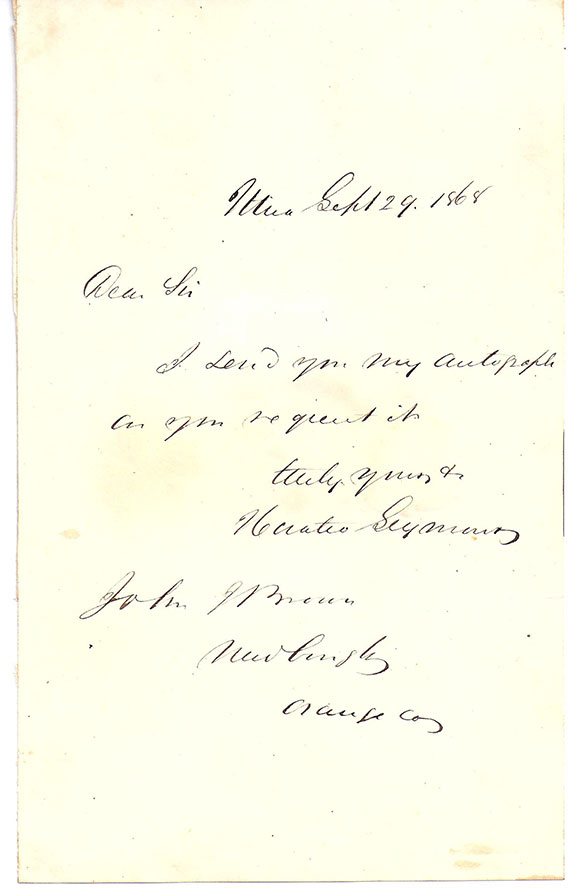 Utica Sept 29. 1868
Dear Sir
I send you my autograph
as you request it
truly yours &c
Horatio Seymour
John J Brown
Newburgh
Orange Co